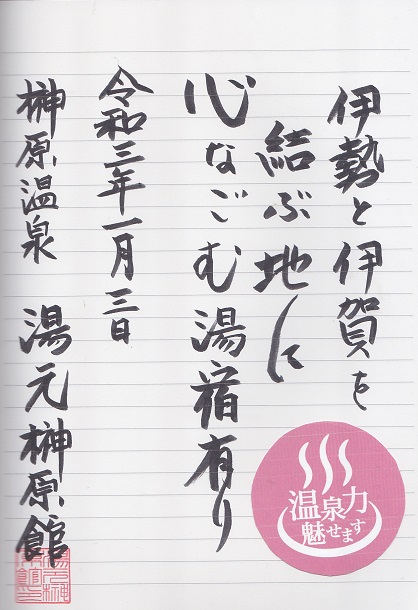 伊勢と伊賀を
結ぶ地に
心なごむ湯宿有り
令和三年一月三日
榊原温泉 湯元榊原館
温泉力
魅せます